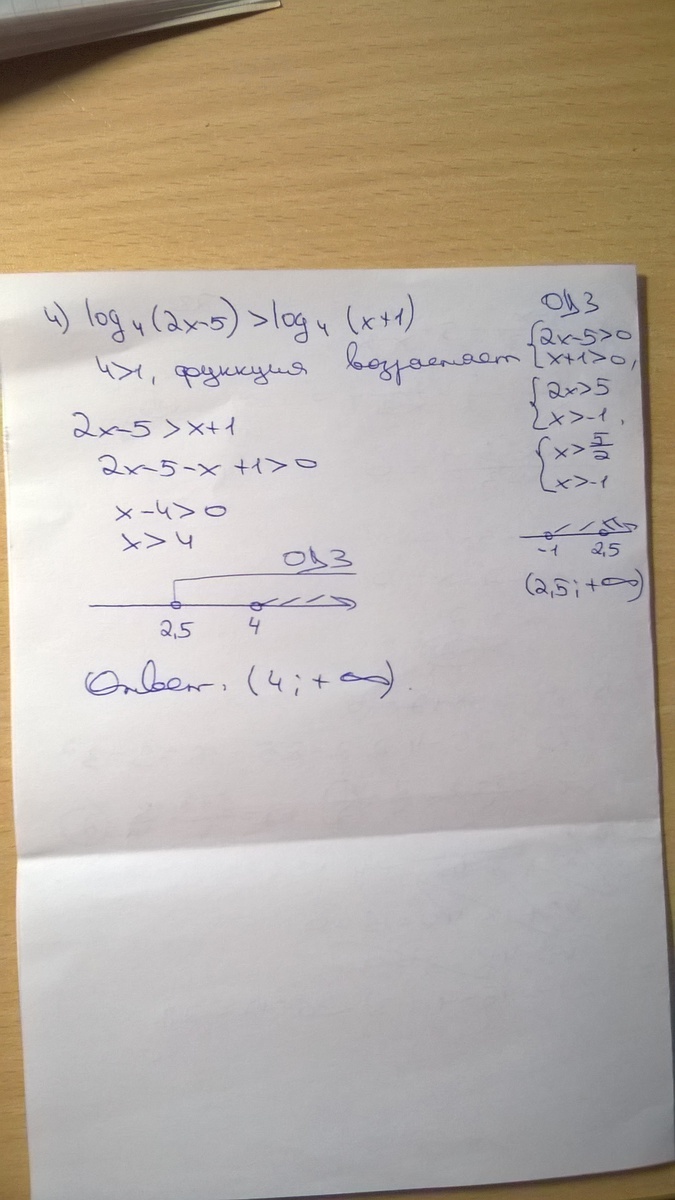 4) log₄(2x-5)>log₄(x+1)
4>1, функция возрастает
2x-5>x+1
2x-5-x+1>0
x-4>0
x>4
ОДЗ
2,5 4
Ответ: (4;+∞).
ОДЗ
{2x-5>0
x+1>0,
{2x>5
x>-1,
{x>5/2
x>-1
-1 2,5
(2,5;+∞)